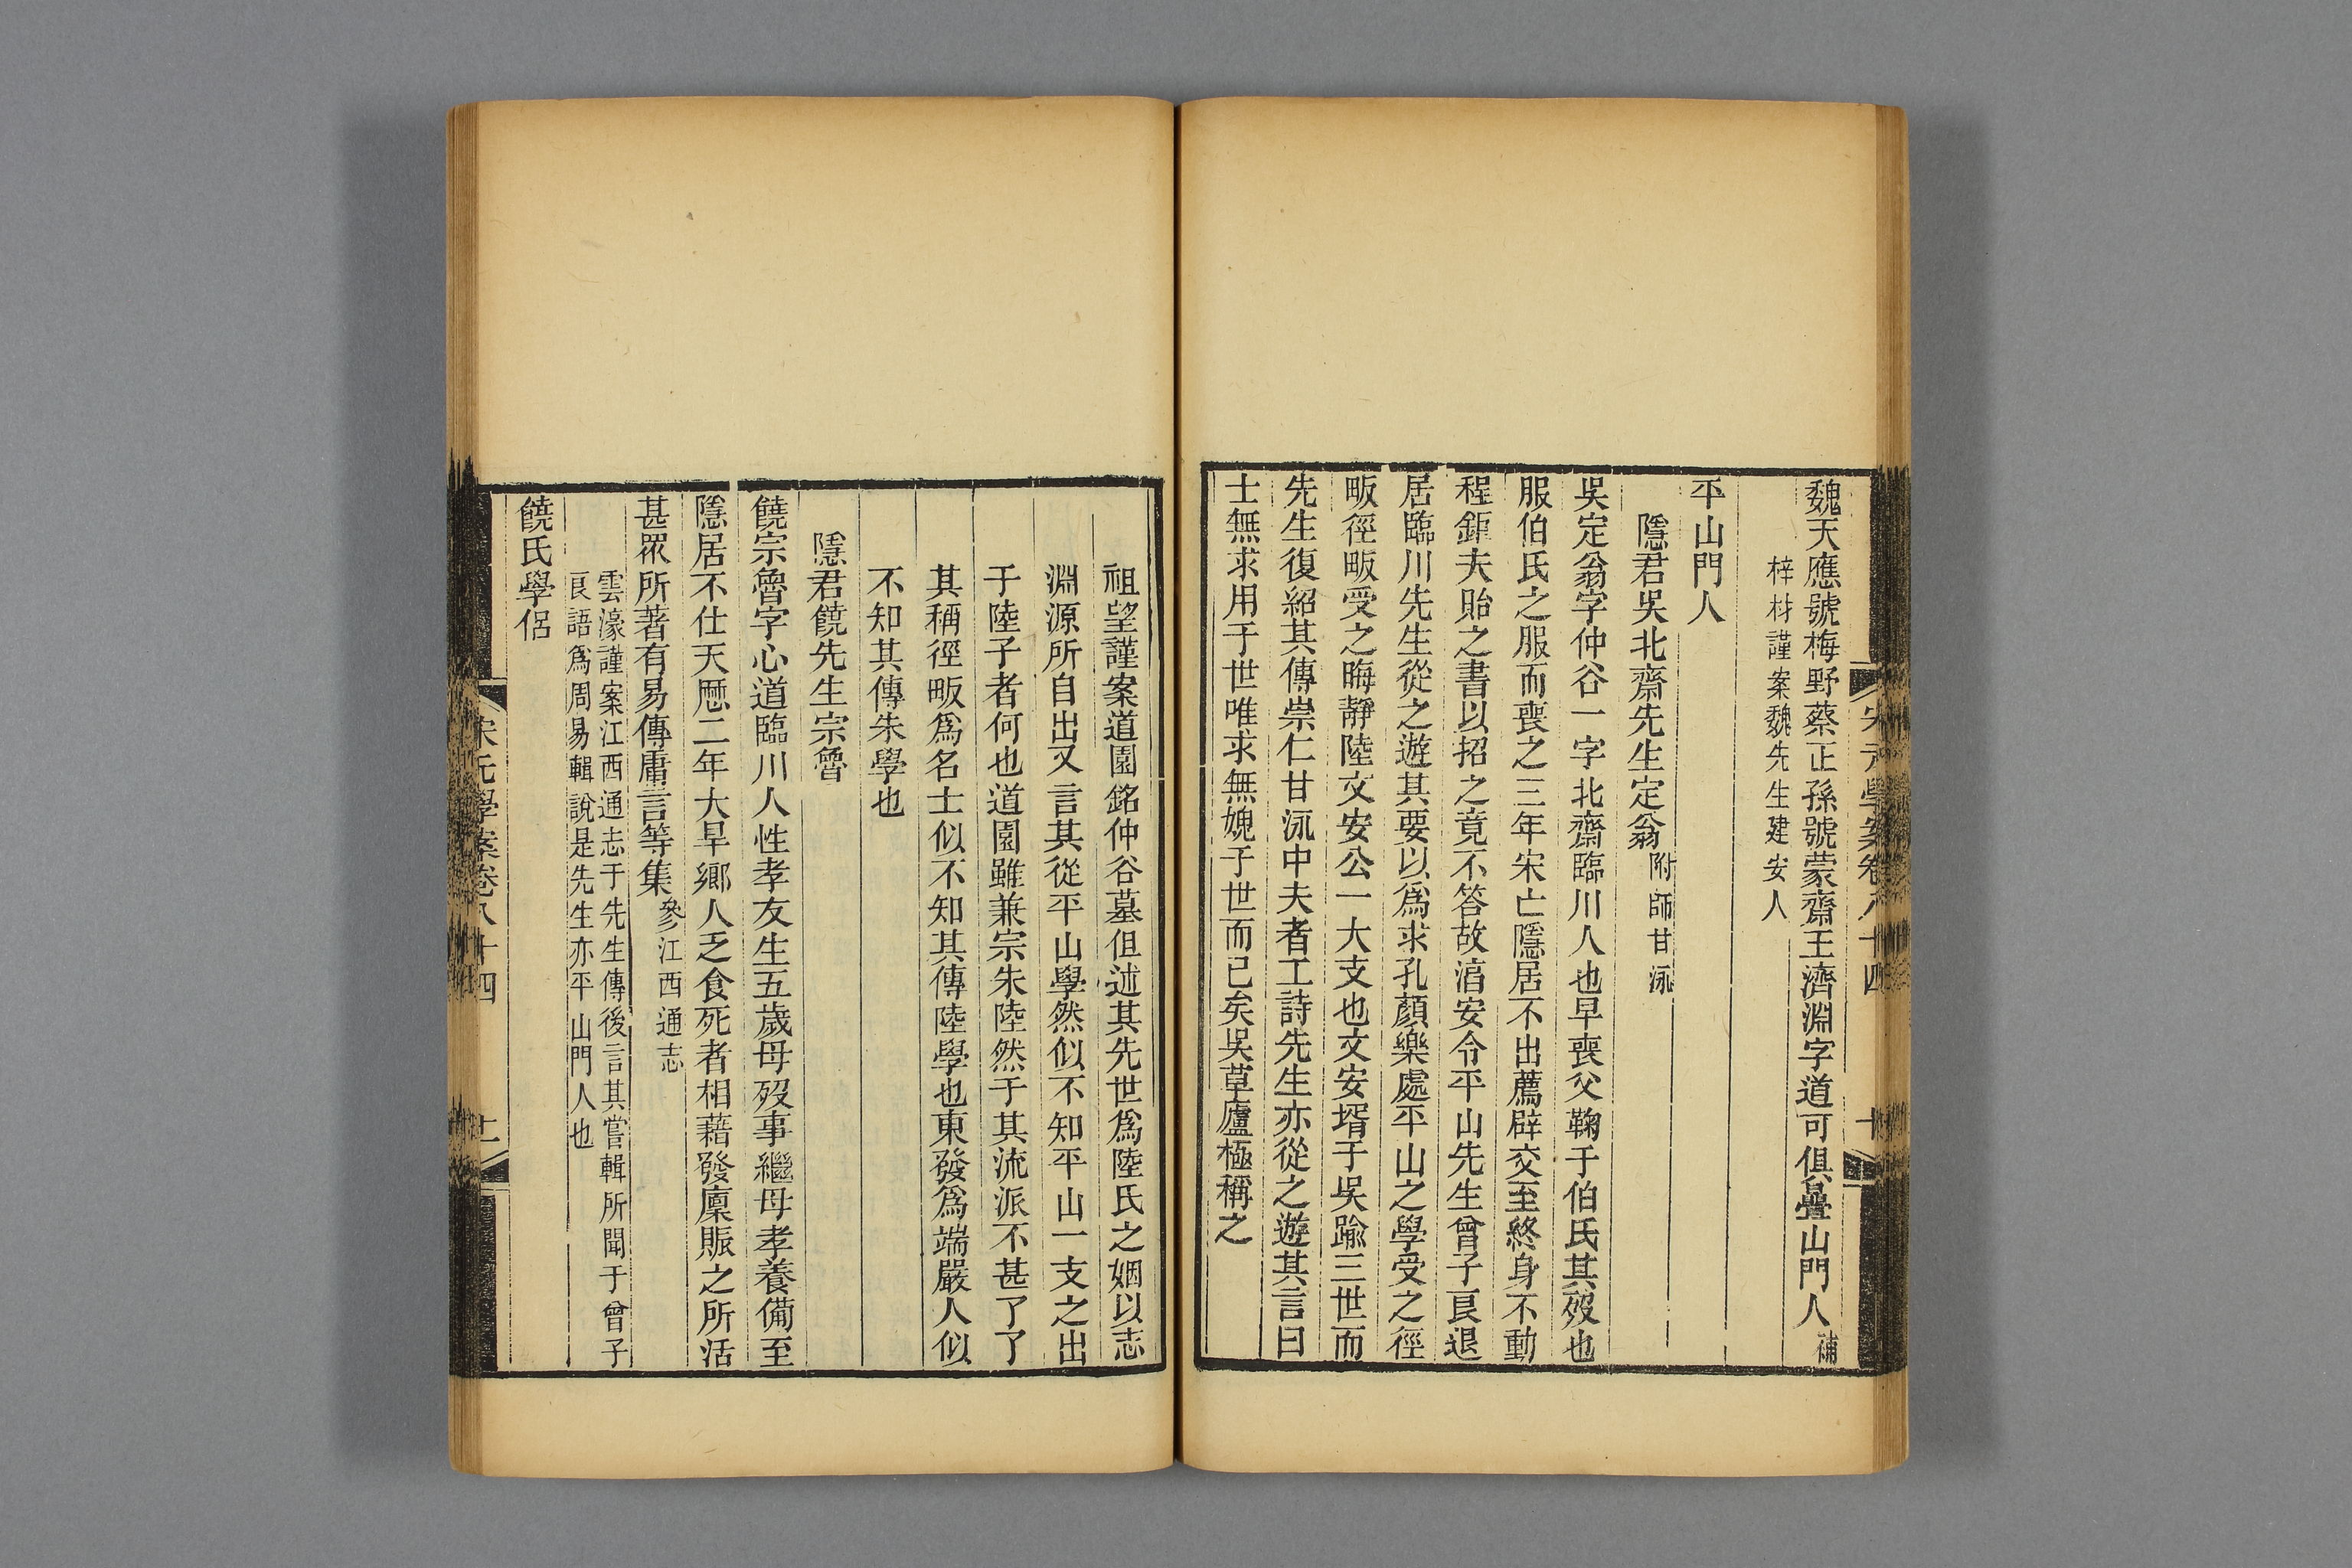 宋元學案卷八十四
十
魏天應號梅野蔡正孫號蒙齋王濟淵字道可俱疊山門人補
梓材謹案魏先生建安人
平山門人
隱君吳北齋先生定翁附師甘泳
吳定翁字仲谷一字北齋臨川人也早喪父鞠于伯氏其歿也
服伯氏之服而喪之三年宋亡隱居不出薦辟交至終身不動
程鉅夫貽之書以招之竟不答故淯安令平山先生曾子良退
居臨川先生從之遊其要以爲求孔顏樂處平山之學受之徑
畈徑畈受之晦靜陸文安公一大支也文安壻于吳踰三世而
先生復紹其傳崇仁甘泳中夫者工詩先生亦從之遊其言曰
士無求用于世唯求無媿于世而已矣吳草廬極稱之
祖望謹案道園銘仲谷墓但述其先世爲陸氏之姻以志
淵源所自出又言其從平山學然似不知平山一支之出
于陸子者何也道園雖兼宗朱陸然于其流派不甚了了
其稱徑畈爲名士似不知其傳陸學也東發爲端嚴人似
不知其傳朱學也
隱君饒先生宗魯
饒宗魯字心道臨川人性孝友生五歲母歿事繼母孝養備至
隱居不仕天厯二年大旱鄉人乏食死者相藉發廩賑之所活
甚眾所著有易傳庸言等集參江西通志
雲濠謹案江西通志于先生傳後言其嘗輯所聞于曾子
良語爲周易輯說是先生亦平山門人也
饒氏學侶
宋元學案卷八十四
十一